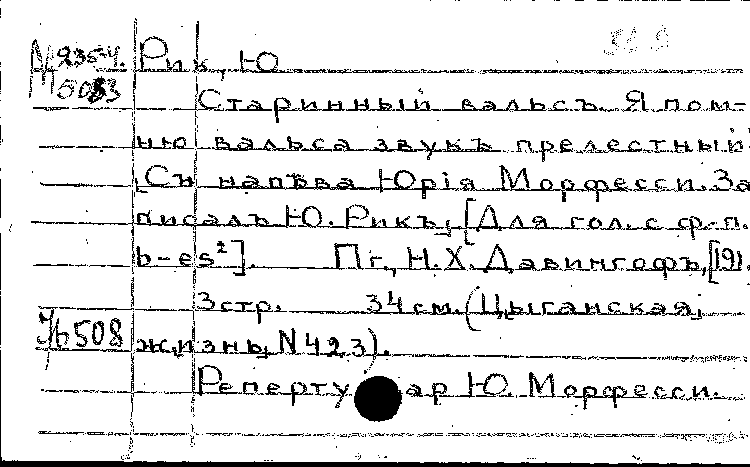 М 2354. Рик, Ю
М 5083
Старинный вальсъ. Я пом-
ню вальса звукъ прелестный
[Съ напѣва Юрія Морфесси. За
писалъ Ю. Рикъ,] [Для гол. с ф-п.
b-es²]. Пг., Н. Х. Давингофъ, [191
3 стр. 34 см. (Цыганская
508 жизнь, N 423).
Репертуар Ю. Морфесси.